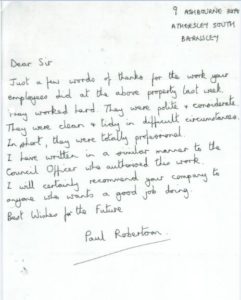 9 ASHBOURNE
ATHERSLEY SOUTH
BARNSLEY
Dear Sir
Just a few words of thanks for the work your
employees did at the above property last week.
They worked hard. They were polite + considerate.
They were clean + tidy in difficult circumstances.
In short, they were totally professional.
I have written in a similar manner to the
Council Officer who authorised this work.
I will certainly recommend your company to
anyone who wants a good job doing.
Best Wishes for the Future
Paul Robertson